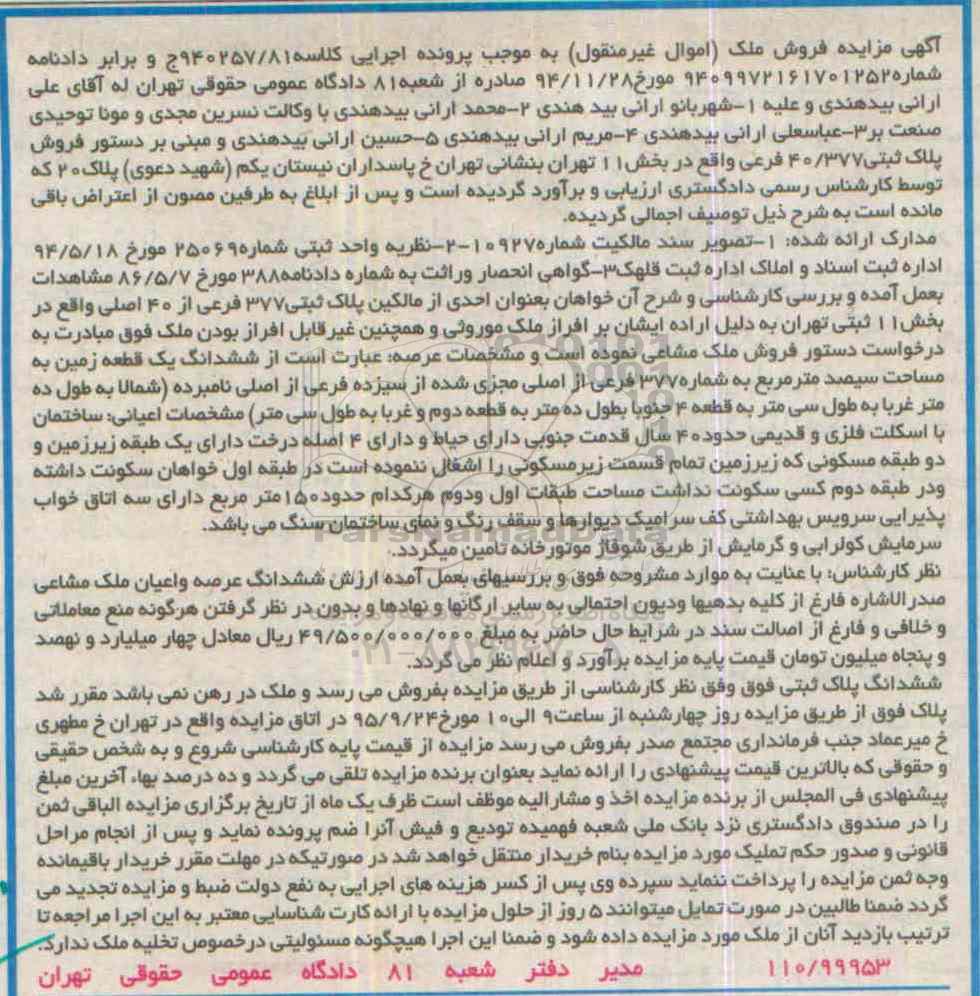 آگهی مزایده فروش ملک (اموال غیرمنقول) به موجب پرونده اجرایی کلاسه۹۴۰۲۵۷/۸۱ج و برابر دادنامه
شماره۹۴۰۹۹۷۲۱۶۱۷۰۱۲۵۲ مورخ۹۴/۱۱/۲۸ صادره از شعبه۸۱ دادگاه عمومی حقوقی تهران له آقای علی
ارانی بیدهندی و علیه ۱-شهربانو ارانی بید هندی ۲-محمد ارانی بیدهندی با وکالت نسرین مجدی و مونا توحیدی
صنعت بر۳-عباسعلی ارانی بیدهندی ۴-مریم ارانی بیدهندی ۵-حسین ارانی بیدهندی و مبنی بر دستور فروش
پلاک ثبتی۴۰/۳۷۷ فرعی واقع در بخش۱۱ تهران بنشانی تهران خ پاسداران نیستان یکم (شهید دعوی) پلاک۲۰ که
توسط کارشناس رسمی دادگستری ارزیابی و برآورد گردیده است و پس از ابلاغ به طرفین مصون از اعتراض باقی
مانده است به شرح ذیل توصیف اجمالی گردیده.
مدارک ارائه شده: ۱-تصویر سند مالکیت شماره۱۰۹۲۷-۲-نظریه واحد ثبتی شماره۲۵۰۶۹ مورخ ۹۴/۵/۱۸
اداره ثبت اسناد و املاک اداره ثبت قلهک۳-گواهی انحصار وراثت به شماره دادنامه۳۸۸ مورخ ۸۶/۵/۷ مشاهدات
بعمل آمده و بررسی کارشناسی و شرح آن خواهان بعنوان احدی از مالکین پلاک ثبتی۳۷۷ فرعی از ۴۰ اصلی واقع در
بخش۱۱ ثبتی تهران به دلیل اراده ایشان بر افراز ملک موروثی و همچنین غیرقابل افراز بودن ملک فوق مبادرت به
درخواست دستور فروش ملک مشاعی نموده است و مشخصات عرصه: عبارت است از ششدانگ یک قطعه زمین به
مساحت سیصد مترمربع به شماره۳۷۷ فرعی از اصلی مجزی شده از سیزده فرعی از اصلی نامبرده (شمالا به طول ده
متر غربا به طول سی متر به قطعه ۴ جنوبا بطول ده متر به قطعه دوم و غربا به طول سی متر) مشخصات اعیانی: ساختمان
با اسکلت فلزی و قدیمی حدود۴۰ سال قدمت جنوبی دارای حیاط و دارای ۴ اصله درخت دارای یک طبقه زیرزمین و
دو طبقه مسکونی که زیرزمین تمام قسمت زیرمسکونی را اشغال ننموده است در طبقه اول خواهان سکونت داشته
ودر طبقه دوم کسی سکونت نداشت مساحت طبقات اول ودوم هرکدام حدود۱۵۰متر مربع دارای سه اتاق خواب
پذیرایی سرویس بهداشتی کف سرامیک دیوارها و سقف رنگ و نمای ساختمان سنگ می باشد.
سرمایش کولرآبی و گرمایش از طریق شوفاژ موتورخانه تامین میگردد.
نظر کارشناس: با عنایت به موارد مشروحه فوق و بررسیهای بعمل آمده ارزش ششدانگ عرصه واعیان ملک مشاعی
صدرالاشاره فارغ از کلیه بدهیها ودیون احتمالی به سایر ارگانها و نهادها و بدون در نظر گرفتن هرگونه منع معاملاتی
و خلافی و فارغ از اصالت سند در شرایط حال حاضر به مبلغ ۴۹/۵۰۰/۰۰۰/۰۰۰ ریال معادل چهار میلیارد و نهصد
و پنجاه میلیون تومان قیمت پایه مزایده برآورد و اعلام نظر می گردد.
ششدانگ پلاک ثبتی فوق وفق نظر کارشناسی از طریق مزایده بفروش می رسد و ملک در رهن نمی باشد مقرر شد
پلاک فوق از طریق مزایده روز چهارشنبه از ساعت۹ الی۱۰ مورخ۹۵/۹/۲۴ در اتاق مزایده واقع در تهران خ مطهری
خ میرعماد جنب فرمانداری مجتمع صدر بفروش می رسد مزایده از قیمت پایه کارشناسی شروع و به شخص حقیقی
و حقوقی که بالاترین قیمت پیشنهادی را ارائه نماید بعنوان برنده مزایده تلقی می گردد و ده درصد بهاء آخرین مبلغ
پیشنهادی فی المجلس از برنده مزایده اخذ و مشارالیه موظف است ظرف یک ماه از تاریخ برگزاری مزایده الباقی ثمن
را در صندوق دادگستری نزد بانک ملی شعبه فهمیده تودیع و فیش آنرا ضم پرونده نماید و پس از انجام مراحل
قانونی و صدور حکم تملیک مورد مزایده بنام خریدار منتقل خواهد شد در صورتیکه در مهلت مقرر خریدار باقیمانده
وجه ثمن مزایده را پرداخت ننماید سپرده وی پس از کسر هزینه های اجرایی به نفع دولت ضبط و مزایده تجدید می
گردد ضمنا طالبین در صورت تمایل میتوانند ۵ روز از حلول مزایده با ارائه کارت شناسایی معتبر به این اجرا مراجعه تا
ترتیب بازدید آنان از ملک مورد مزایده داده شود و ضمنا این اجرا هیچگونه مسئولیتی درخصوص تخلیه ملک ندارد.
۱۱۰/۹۹۹۵۳ مدیر دفتر شعبه ۸۱ دادگاه عمومی حقوقی تهران
ParsNamadData